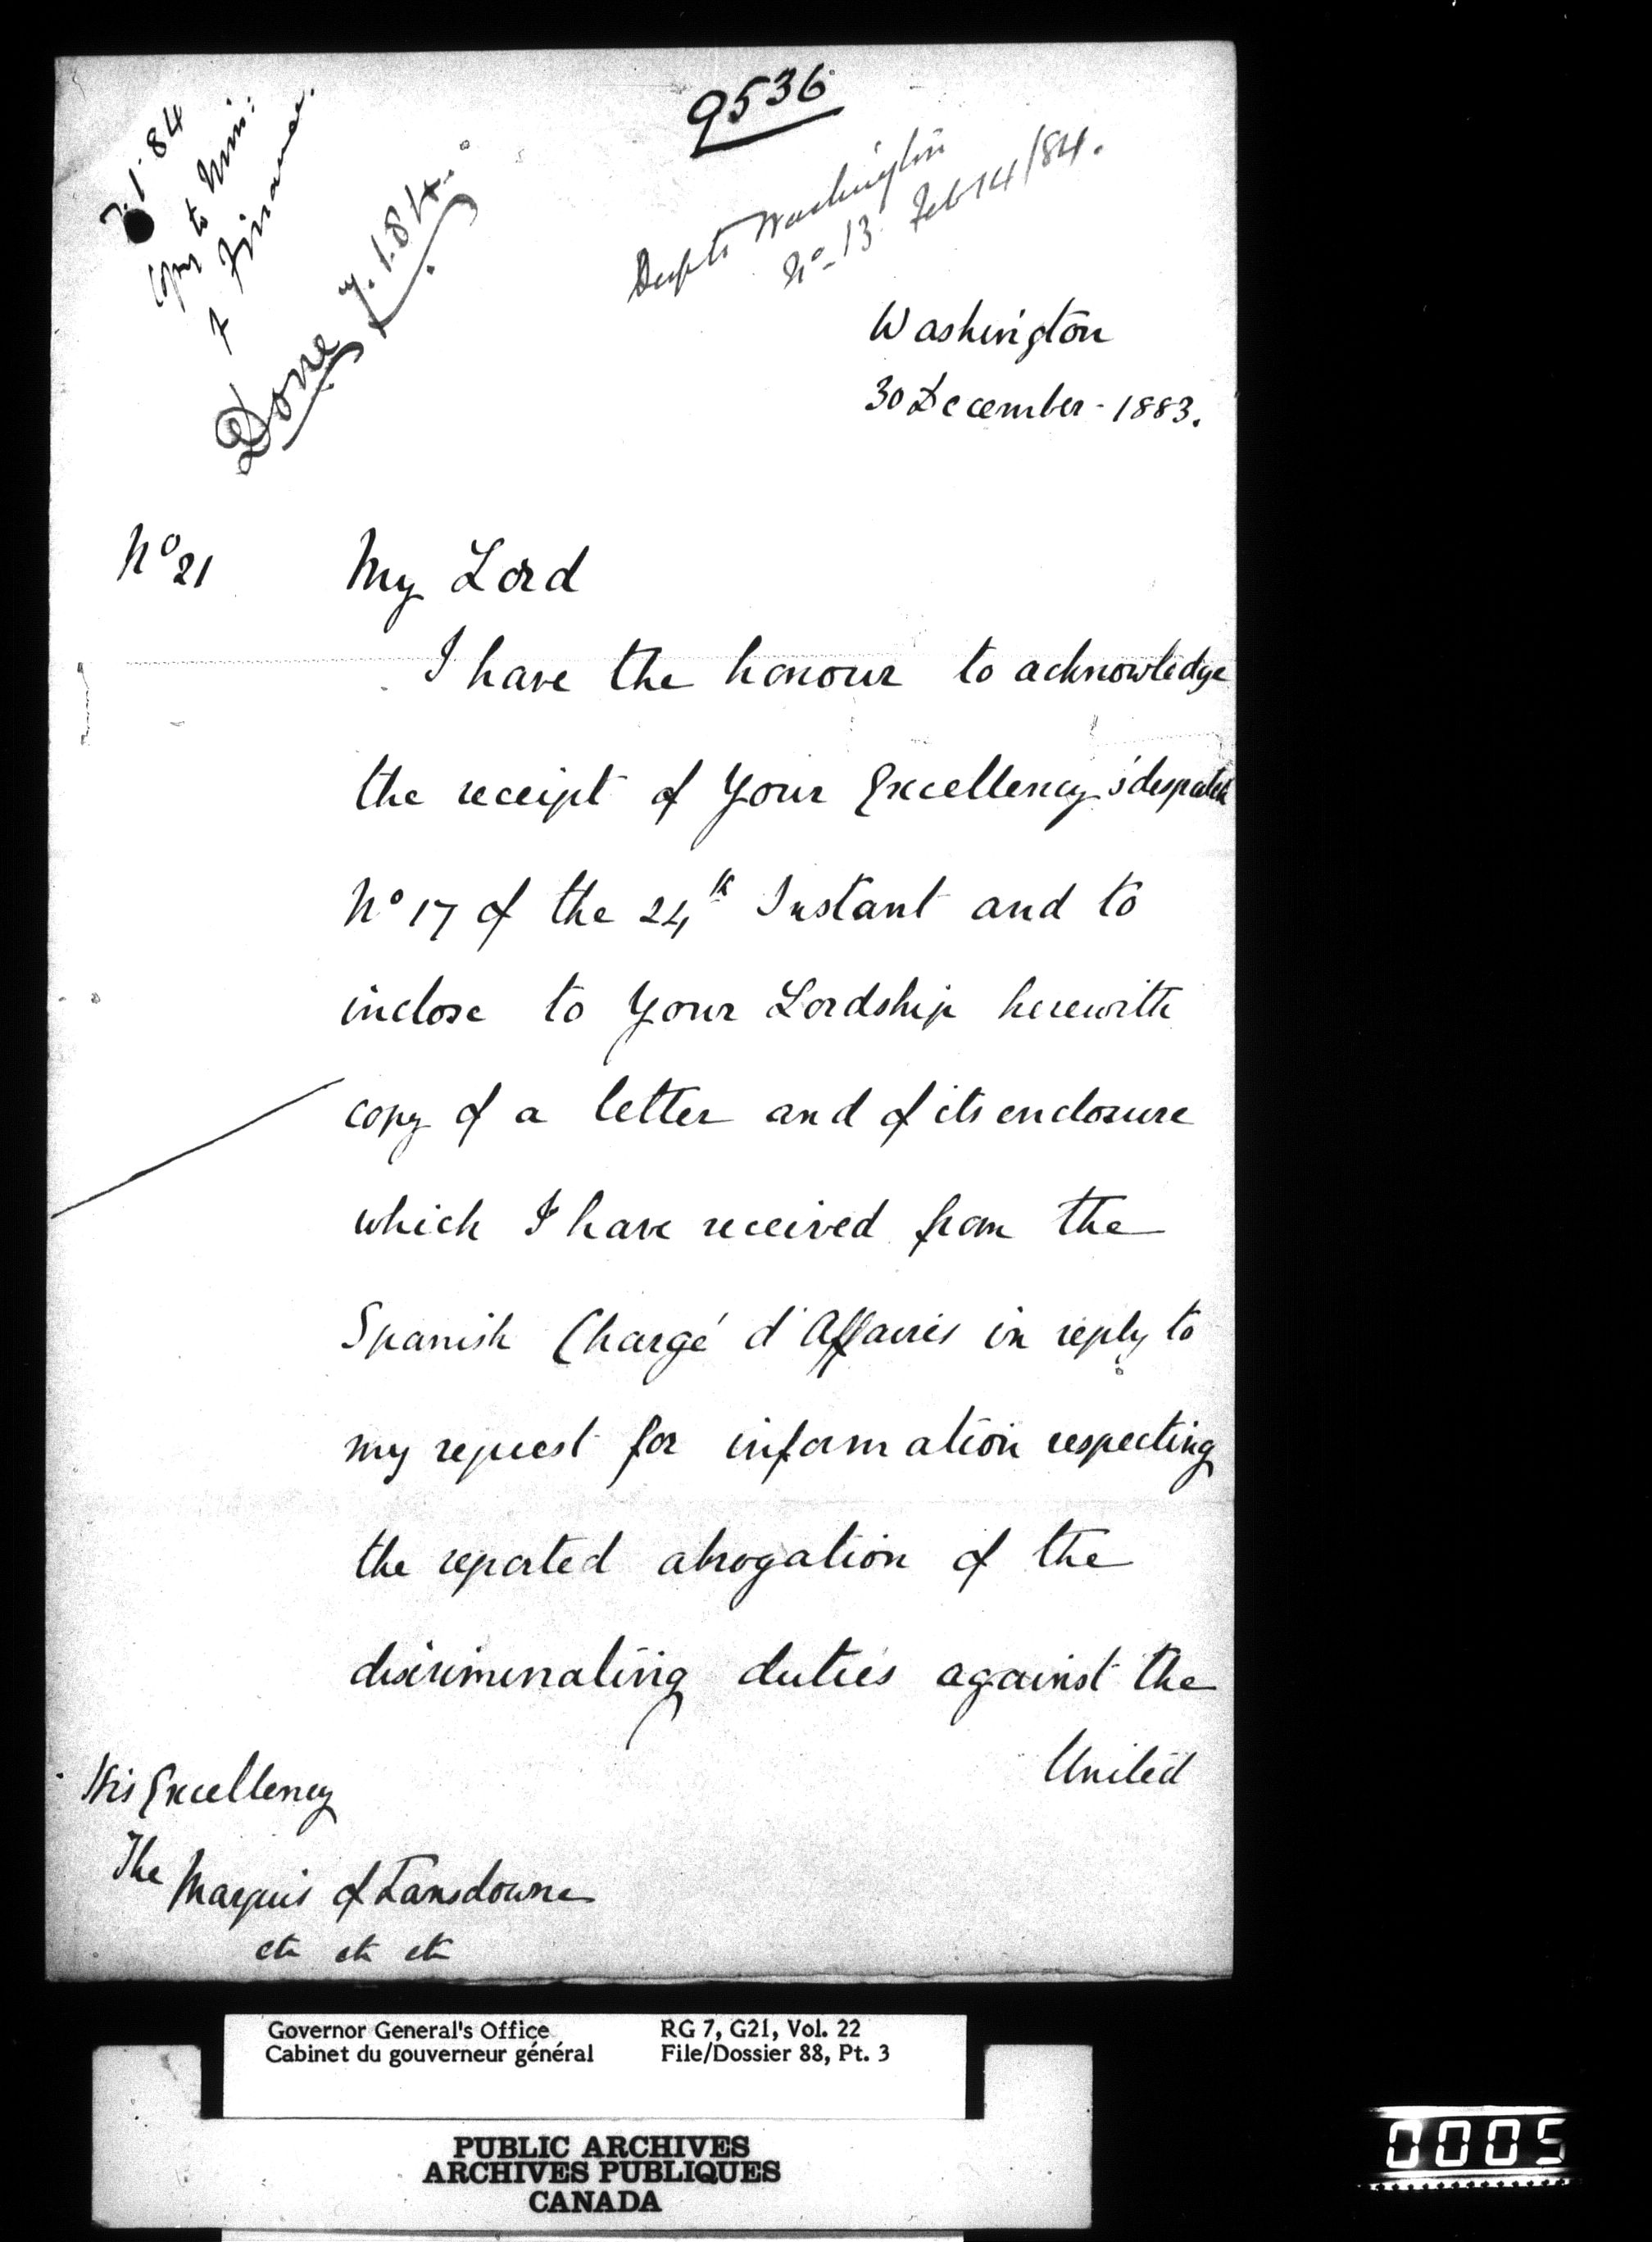 9536
7.1.84
Copy to Mini:
of Finance.
Done 7.1.84.
Washington
No. 13 Feb 14/84.
Washington
30 December - 1883.
No 21
My Lord
I have the honour to acknowledge
the receipt of Your Excellency's despatch
No 17 of the 24th Instant and to
inclose to Your Lordship herewith
copy of a letter and of its enclosure
which I have received from the
Spanish Chargé d'Affaires in reply to
my request for information respecting
the reported abrogation of the
discriminating duties against the
United
His Excellency
The Marquis of Lansdowne
etc etc etc
Governor General's Office
Cabinet du gouverneur général
RG 7, G21, Vol. 22
File/Dossier 88, Pt. 3
PUBLIC ARCHIVES
ARCHIVES PUBLIQUES
CANADA
0005